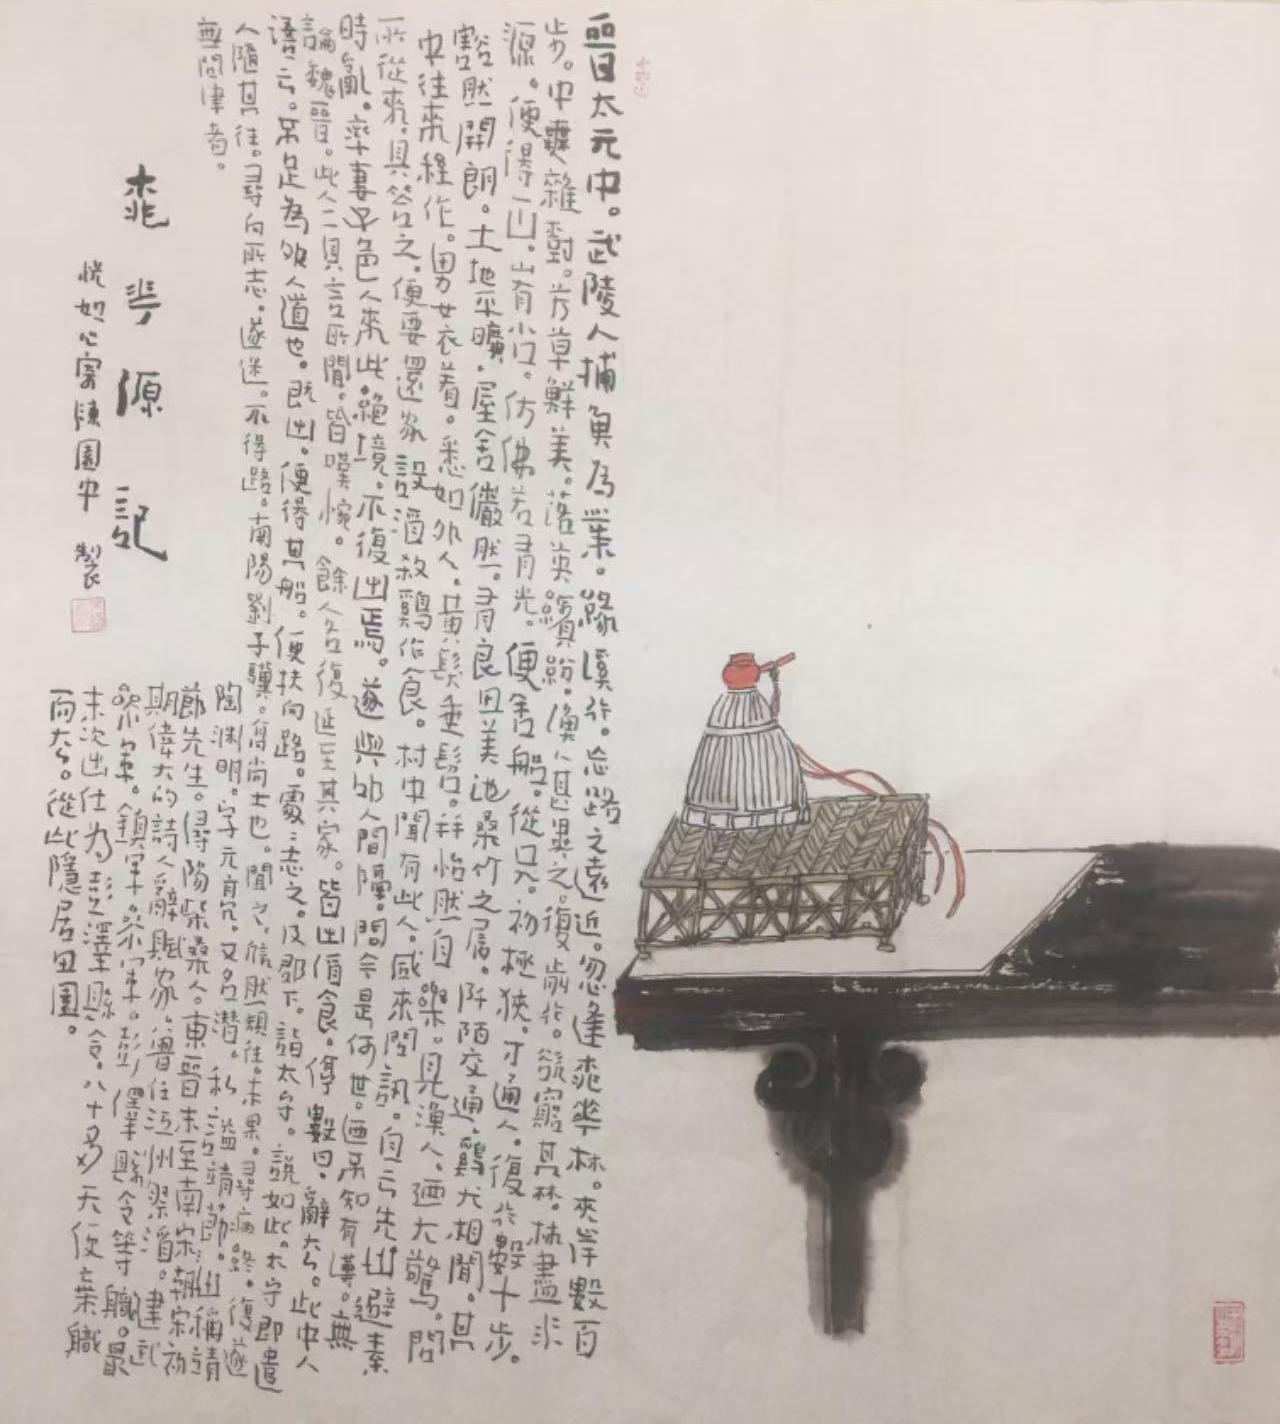 晉太元中。武陵人捕魚為業。緣溪行。忘路之遠近。忽逢桃華林。夾岸數百
步。中無雜樹。芳草鮮美。落英繽紛。漁人甚異之。復前行。欲窮其林。林盡水
源。便得一山。山有小口。仿佛若有光。便舍船。從口入。初極狹。才通人。復行數十步。
豁然開朗。土地平曠。屋舍儼然。有良田美池桑竹之屬。阡陌交通。雞犬相聞。其
中往來種作。男女衣着。悉如外人。黃髮垂髫。并怡然自樂。見漁人。廼大驚。問
所從來。具答之。便要還家設酒殺雞作食。村中聞有此人。咸來問訊。自云先世避秦
時亂。率妻子邑人來此絕境。不復出焉。遂與外人間隔。問今是何世。廼不知有漢。無
論魏晉。此人一一具言所聞。皆嘆惋。餘人各復延至其家。皆出酒食。停數日。辭去。此中人
語云。不足為外人道也。既出。便得其船。便扶向路。處處志之。及郡下。詣太守。說如此。太守即遣
人隨其往。尋向所志。遂迷。不得路。南陽劉子驥。高尚士也。聞之。欣然規往。未果。尋病終。後遂
無問津者。
桃華源記
恍如公寓陳園中製
陶淵明。字元亮。又名潛。私謚靖節。世稱靖
節先生。潯陽柴桑人。東晉末至南宋朝宋初
期偉大的詩人辭賦家。曾任江州祭酒。建威
參軍。鎮軍。參軍。彭澤縣令等職。最
末次出仕為彭澤縣令。八十多天便棄職
而去。從此隱居田園。